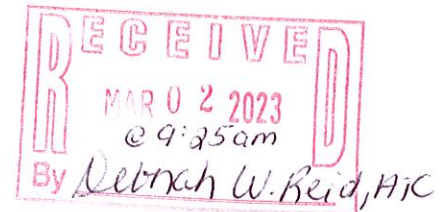 RECEIVED
MAR 02 2023
@ 9:25am
By Debnah W. Reid, AIC